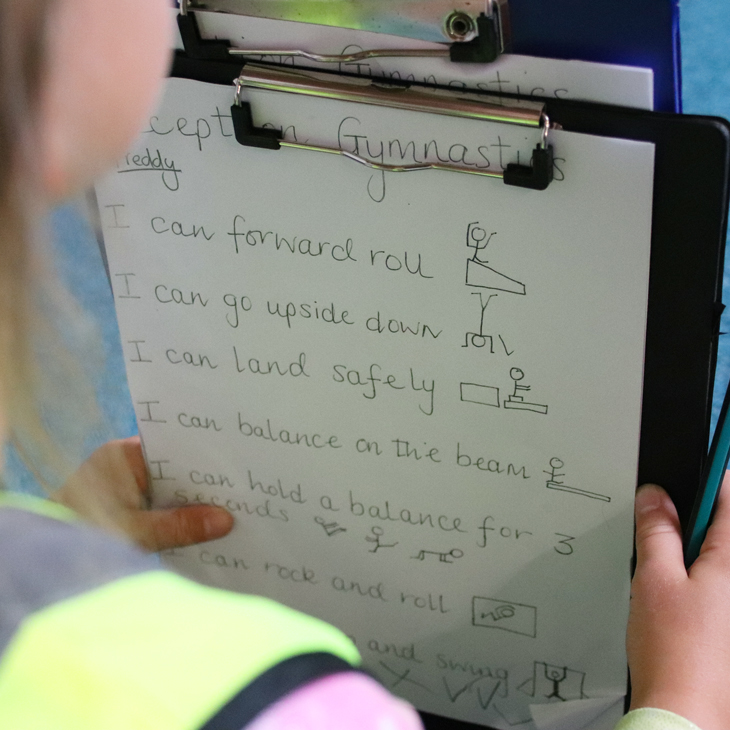 Gymnastics
cept on Gymnastics
Freddy
I can forward roll
I can go upside down
I can land safely
I can balance on the beam
I can hold a balance for 3
seconds
I can rock and roll
and swing